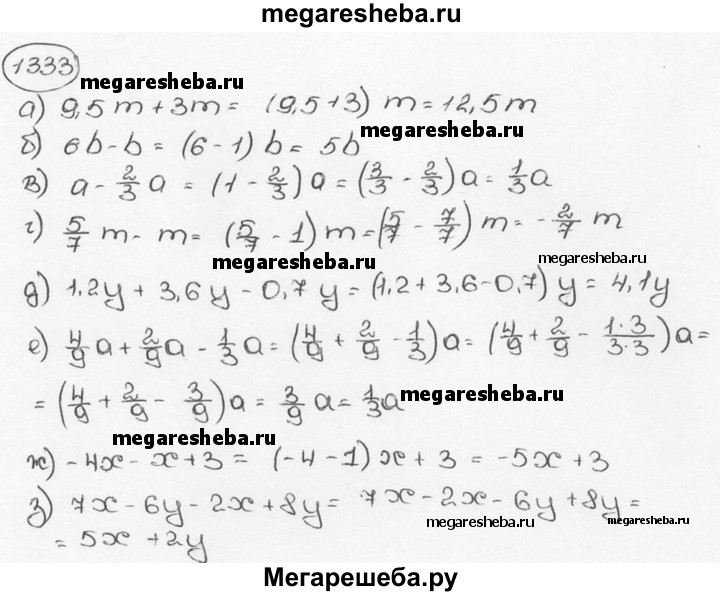 megaresheba.ru
1333
megaresheba.ru
а) 9,5m + 3m = (9,5+3) m = 12,5m
megaresheba.ru
б) 6b - b = (6-1) b = 5b
в) a - 2/3 a = (1 - 2/3) a = (3/3 - 2/3) a = 1/3 a
г) 5/7 m - m = (5/7 - 1) m = (5/7 - 7/7) m = - 2/7 m
megaresheba.ru
megaresheba.ru
д) 1,2y + 3,6y - 0,7y = (1,2 + 3,6 - 0,7) y = 4,1y
е) 4/9 a + 2/9 a - 1/3 a = (4/9 + 2/9 - 1/3) a = (4/9 + 2/9 - 1·3/3·3) a =
= (4/9 + 2/9 - 3/9) a = 3/9 a = 1/3 a
megaresheba.ru
megaresheba.ru
ж) -4x - x + 3 = (-4 - 1) x + 3 = -5x + 3
з) 7x - 6y - 2x + 8y = 7x - 2x - 6y + 8y =
megaresheba.ru
megaresheba.ru
= 5x + 2y
Мегарешеба.ру